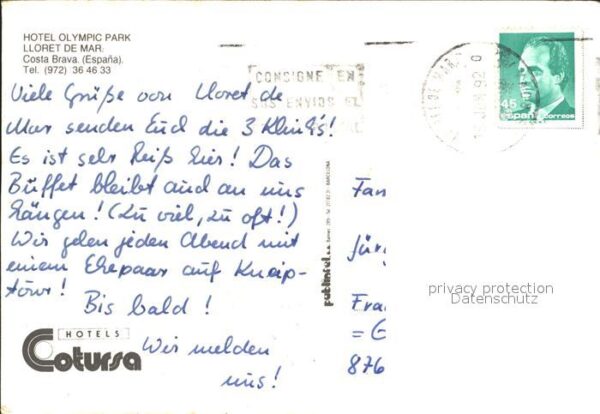 HOTEL OLYMPIC PARK
LLORET DE MAR.
Costa Brava. (España).
Tel. (972) 36 46 33
CONSIGNE EN
SUS ENVIOS EL
92
45
españa correos
Viele Grüße von Lloret de
Mar senden Euch die 3 Klink's!
Es ist sehr heiß hier! Das
Büffet bleibt auch an uns
hängen! (Zu viel, zu oft!)
Wir gehen jeden Abend mit
einem Ehepaar auf Kneip-
tour!
Bis bald!
Wir melden
uns!
HOTELS
Cotursa
BARCELONA
Fam
Jür
Fra
= G
876
privacy protection
Datenschutz